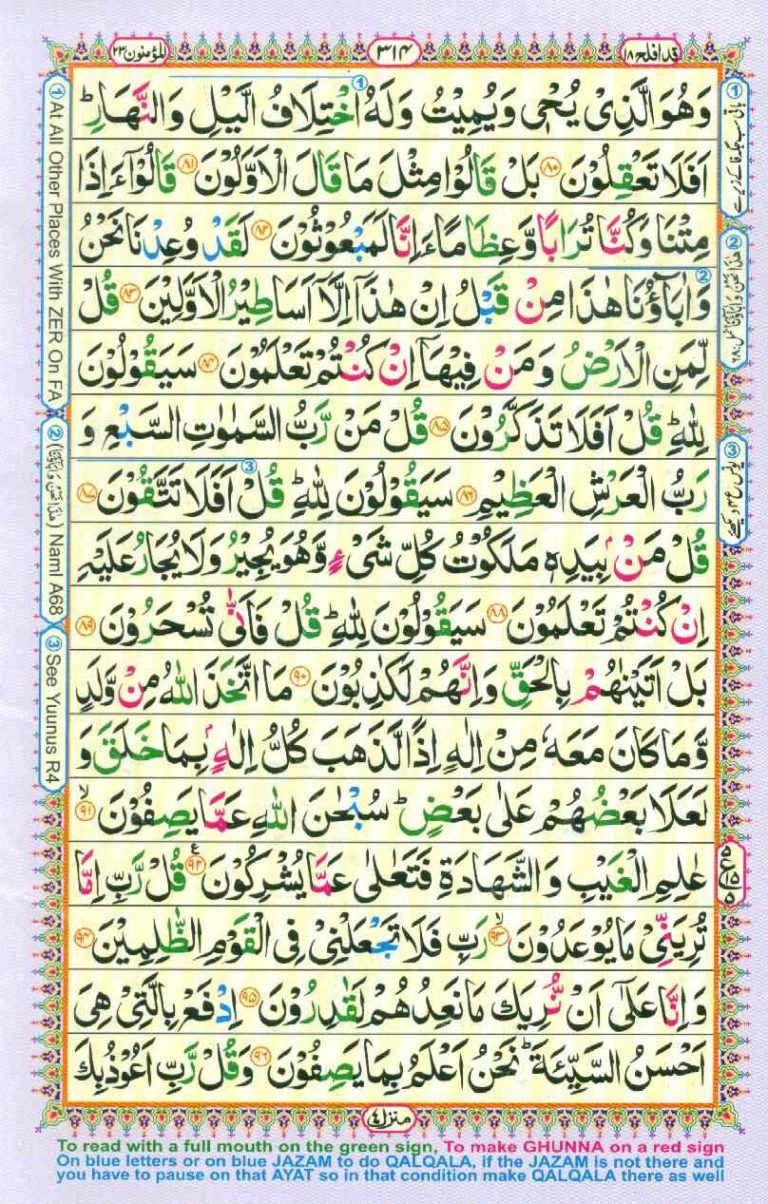 قد افلح ۱۸
۳۱۴
المؤمنون ۲۳
وَهُوَ الَّذِیْ یُحْیٖ وَیُمِیْتُ وَلَهُ اخْتِلَافُ الَّیْلِ وَالنَّهَارِ ؕ
اَفَلَا تَعْقِلُوْنَ ۸۰ بَلْ قَالُوْا مِثْلَ مَا قَالَ الْاَوَّلُوْنَ ۸۱ قَالُوْۤا ءَاِذَا
مِتْنَا وَكُنَّا تُرَابًا وَّعِظَامًا ءَاِنَّا لَمَبْعُوْثُوْنَ ۸۲ لَقَدْ وُعِدْنَا نَحْنُ
وَاٰبَآؤُنَا هٰذَا مِنْ قَبْلُ اِنْ هٰذَاۤ اِلَّاۤ اَسَاطِیْرُ الْاَوَّلِیْنَ ۸۳ قُلْ
لِّمَنِ الْاَرْضُ وَمَنْ فِیْهَاۤ اِنْ كُنْتُمْ تَعْلَمُوْنَ ۸۴ سَیَقُوْلُوْنَ
لِلّٰهِ ؕ قُلْ اَفَلَا تَذَكَّرُوْنَ ۸۵ قُلْ مَنْ رَّبُّ السَّمٰوٰتِ السَّبْعِ وَ
رَبُّ الْعَرْشِ الْعَظِیْمِ ۸۶ سَیَقُوْلُوْنَ لِلّٰهِ ؕ قُلْ اَفَلَا تَتَّقُوْنَ ۸۷
قُلْ مَنْۢ بِیَدِهٖ مَلَكُوْتُ كُلِّ شَیْءٍ وَّهُوَ یُجِیْرُ وَلَا یُجَارُ عَلَیْهِ
اِنْ كُنْتُمْ تَعْلَمُوْنَ ۸۸ سَیَقُوْلُوْنَ لِلّٰهِ ؕ قُلْ فَاَنّٰی تُسْحَرُوْنَ ۸۹
بَلْ اَتَیْنٰهُمْ بِالْحَقِّ وَاِنَّهُمْ لَكٰذِبُوْنَ ۹۰ مَا اتَّخَذَ اللّٰهُ مِنْ وَّلَدٍ
وَّمَا كَانَ مَعَهٗ مِنْ اِلٰهٍ اِذًا لَّذَهَبَ كُلُّ اِلٰهٍۭ بِمَا خَلَقَ وَ
لَعَلَا بَعْضُهُمْ عَلٰی بَعْضٍ ؕ سُبْحٰنَ اللّٰهِ عَمَّا یَصِفُوْنَ ۙ۹۱
عٰلِمِ الْغَیْبِ وَالشَّهَادَةِ فَتَعٰلٰی عَمَّا یُشْرِكُوْنَ ۹۲ع قُلْ رَّبِّ اِمَّا
تُرِیَنِّیْ مَا یُوْعَدُوْنَ ۙ۹۳ رَبِّ فَلَا تَجْعَلْنِیْ فِی الْقَوْمِ الظّٰلِمِیْنَ ۹۴
وَاِنَّا عَلٰۤی اَنْ نُّرِیَكَ مَا نَعِدُهُمْ لَقٰدِرُوْنَ ۹۵ اِدْفَعْ بِالَّتِیْ هِیَ
اَحْسَنُ السَّیِّئَةَ ؕ نَحْنُ اَعْلَمُ بِمَا یَصِفُوْنَ ۹۶ وَقُلْ رَّبِّ اَعُوْذُ بِكَ
منزل ۴
① At All Other Places With ZER On FA
② (هٰذَا نَحْنُ وَ اٰبَآؤُنَا) Naml A68
③ See Yuunus R4
To read with a full mouth on the green sign, To make GHUNNA on a red sign
On blue letters or on blue JAZAM to do QALQALA, if the JAZAM is not there and
you have to pause on that AYAT so in that condition make QALQALA there as well